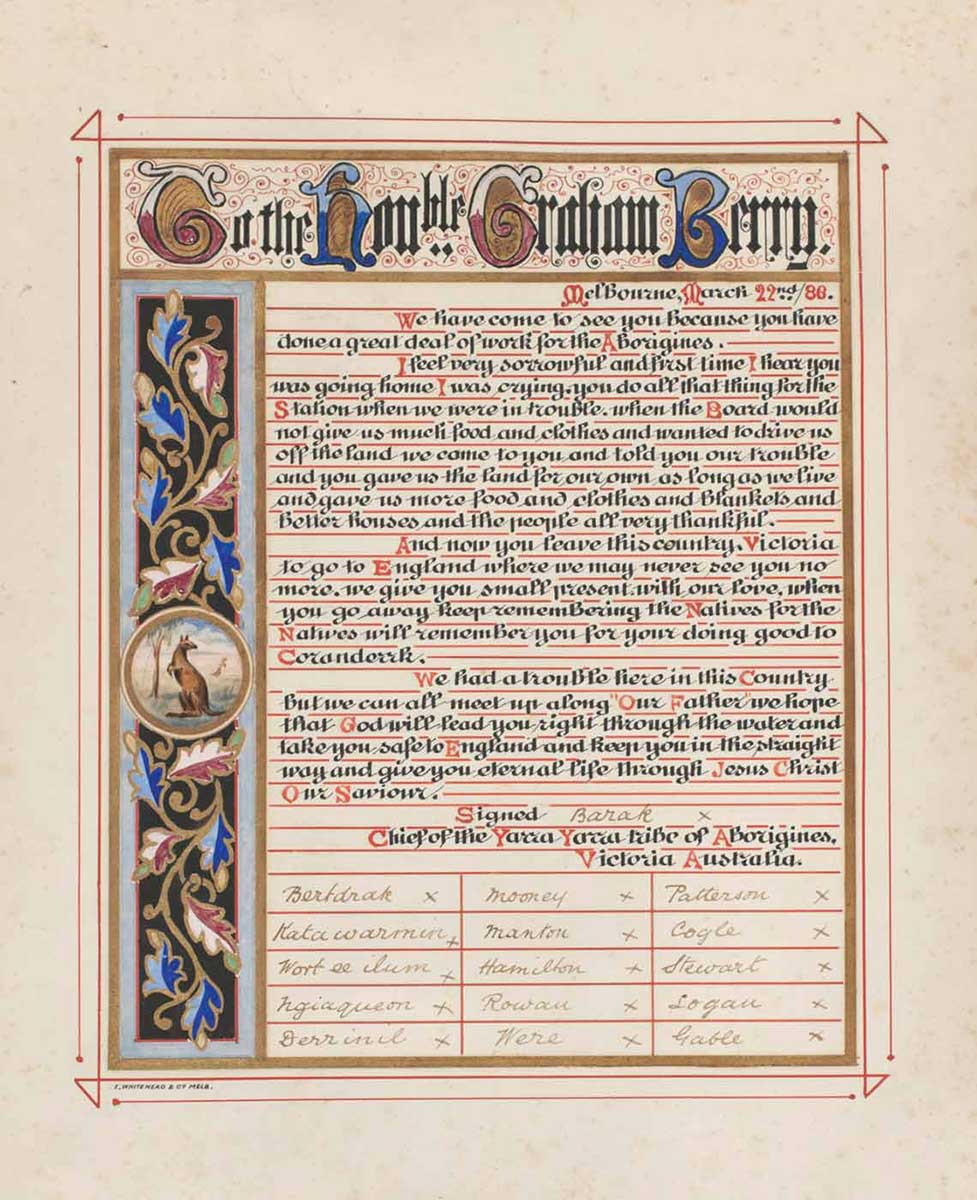 To the Honble Graham Berry.
Melbourne, March 22nd/86.
We have come to see you because you have
done a great deal of work for the Aborigines.
I feel very sorrowful and first time I hear you
was going home I was crying. you do all that thing for the
Station when we were in trouble. when the Board would
not give us much food and clothes and wanted to drive us
off the land we came to you and told you our trouble
and you gave us the land for our own as long as we live
and gave us more food and clothes and blankets and
better houses and the people all very thankful.
And now you leave this country, Victoria
to go to England where we may never see you no
more. we give you small present with our love, when
you go away keep remembering the Natives for the
Natives will remember you for your doing good to
Coranderrk.
We had a trouble here in this Country
but we can all meet up along "Our Father" we hope
that God will lead you right through the water and
take you safe to England and keep you in the straight
way and give you eternal life through Jesus Christ
Our Saviour.
Signed Barak x
Chief of the Yarra Yarra tribe of Aborigines,
Victoria Australia.
Bertdrak x Mooney x Patterson x
Katawarmin x Manton x Cogle x
Wort ee ilum x Hamilton x Stewart x
Ngiaqueon x Rowan x Logan x
Derrinil x Were x Gable x
F. WHITEHEAD & CO MELB.